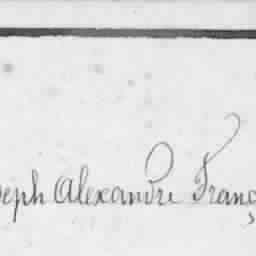 seph Alexandre Franç